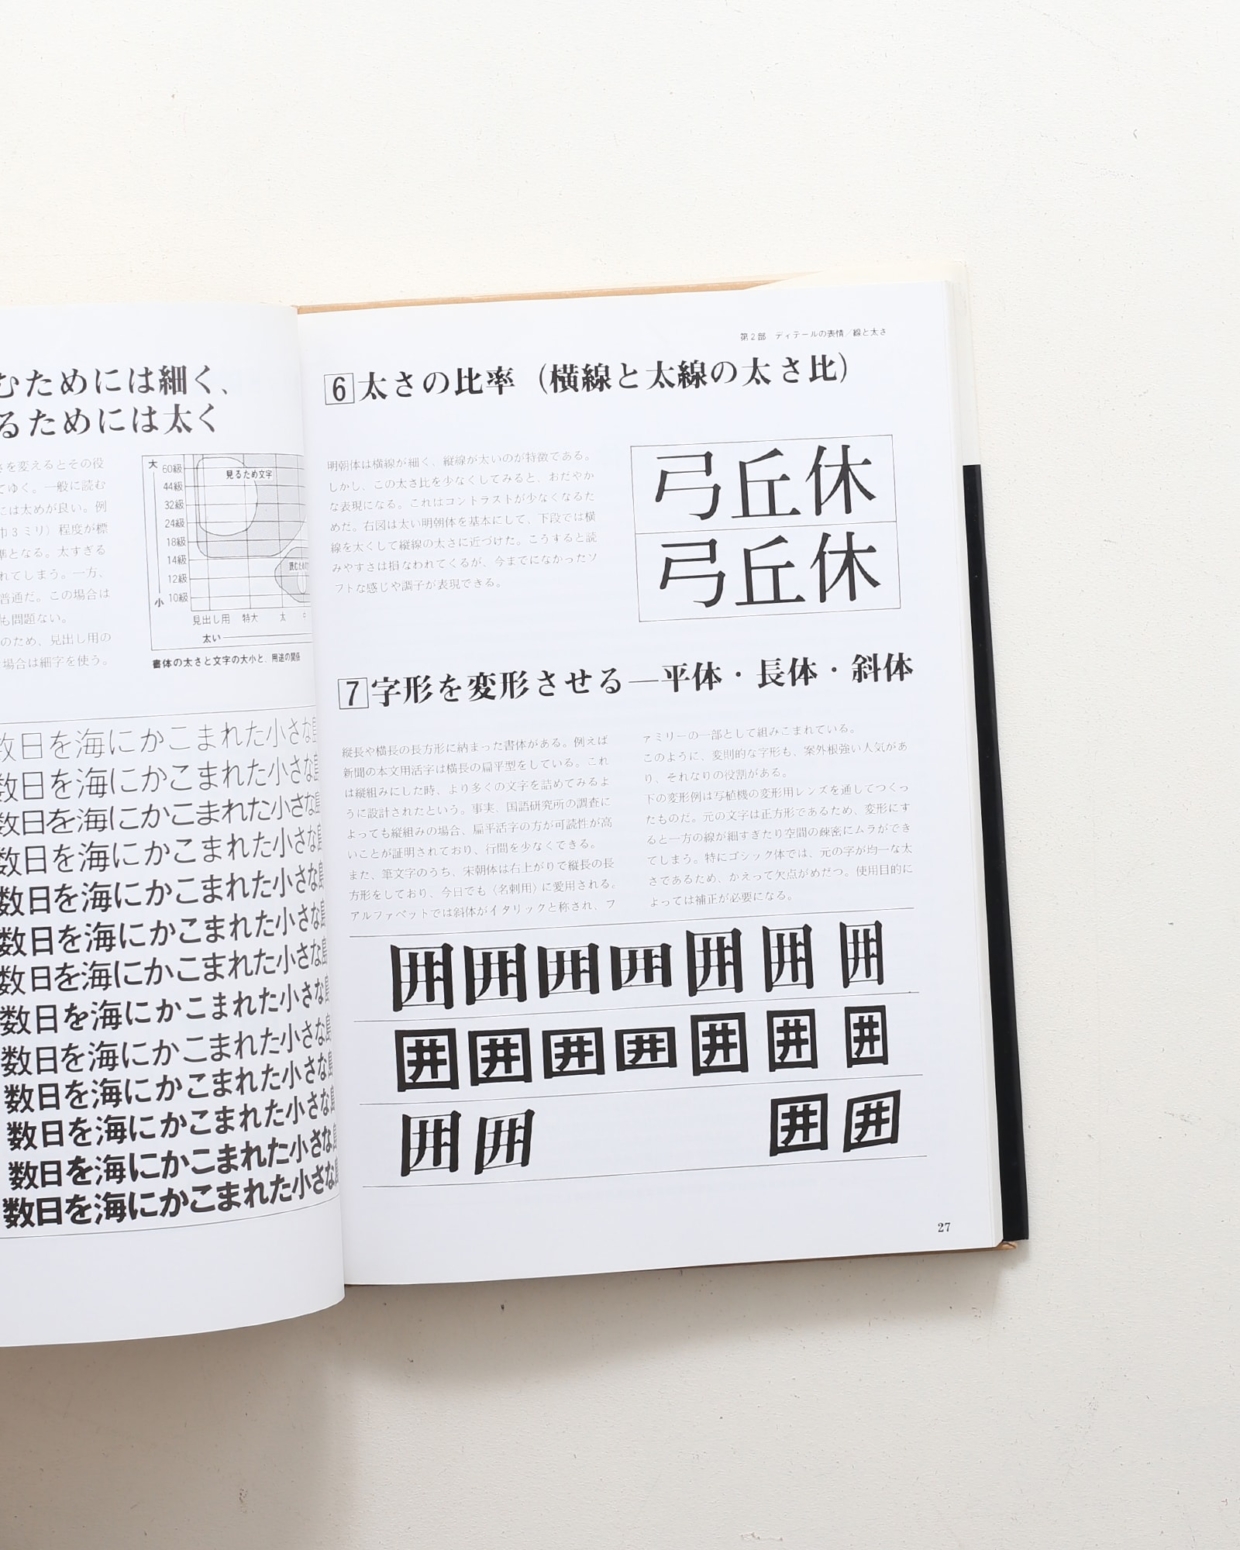 むためには細く、
るためには太く
さを変えるとその役
てゆく。一般に読む
には太めが良い。例
巾3ミリ）程度が標
準となる。太すぎる
れてしまう。一方、
普通だ。この場合は
も問題ない。
のため、見出し用の
場合は細字を使う。
大
60級
44級
32級
24級
18級
14級
12級
10級
小
見るため文字
見出し用 特大 太
太い
書体の太さと文字の大小と、用途の関係
数日を海にかこまれた小さな島
数日を海にかこまれた小さな島
数日を海にかこまれた小さな島
数日を海にかこまれた小さな島
数日を海にかこまれた小さな島
数日を海にかこまれた小さな島
数日を海にかこまれた小さな島
数日を海にかこまれた小さな島
数日を海にかこまれた小さな島
数日を海にかこまれた小さな島
数日を海にかこまれた小さな島
数日を海にかこまれた小さな島
数日を海にかこまれた小さな島
第2部 ディテールの表情／線と太さ
6 太さの比率（横線と太線の太さ比）
明朝体は横線が細く、縦線が太いのが特徴である。
しかし、この太さ比を少なくしてみると、おだやか
な表現になる。これはコントラストが少なくなるた
めだ。右図は太い明朝体を基本にして、下段では横
線を太くして縦線の太さに近づけた。こうすると読
みやすさは損なわれてくるが、今までになかったソ
フトな感じや調子が表現できる。
弓丘休
弓丘休
7 字形を変形させる—平体・長体・斜体
縦長や横長の長方形に納まった書体がある。例えば
新聞の本文用活字は横長の扁平型をしている。これ
は縦組みにした時、より多くの文字を詰めてみるよ
うに設計されたという。事実、国語研究所の調査に
よっても縦組みの場合、扁平活字の方が可読性が高
いことが証明されており、行間を少なくできる。
また、筆文字のうち、宋朝体は右上がりで縦長の長
方形をしており、今日でも〈名刺用〉に愛用される。
アルファベットでは斜体がイタリックと称され、フ
ァミリーの一部として組みこまれている。
このように、変則的な字形も、案外根強い人気があ
り、それなりの役割がある。
下の変形例は写植機の変形用レンズを通してつくっ
たものだ。元の文字は正方形であるため、変形にす
ると一方の線が細すぎたり空間の疎密にムラができ
てしまう。特にゴシック体では、元の字が均一な太
さであるため、かえって欠点がめだつ。使用目的に
よっては補正が必要になる。
囲囲囲囲囲囲囲
囲囲囲囲囲囲囲
囲囲 囲囲
27